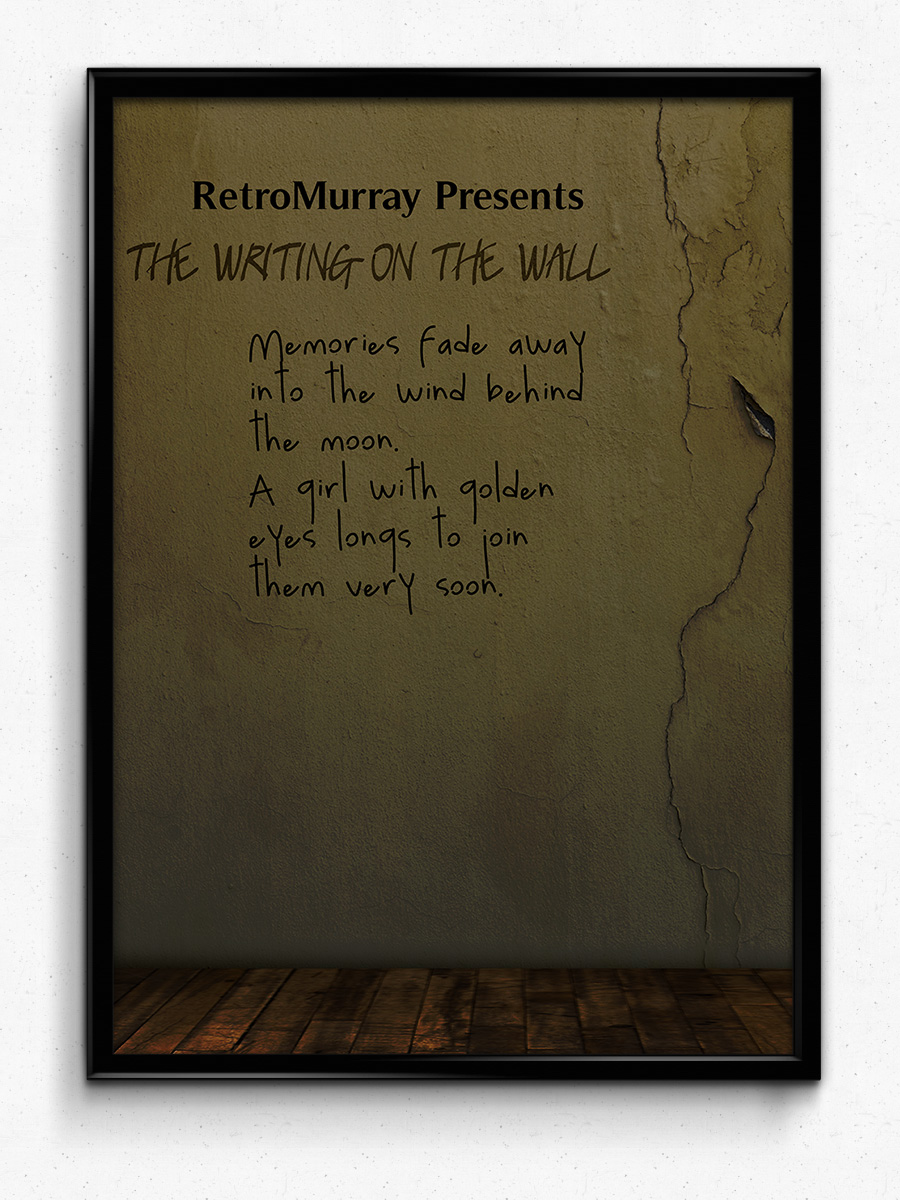 RetroMurray Presents
THE WRITING ON THE WALL
Memories fade away
into the wind behind
the moon.
A girl with golden
eyes longs to join
them very soon.